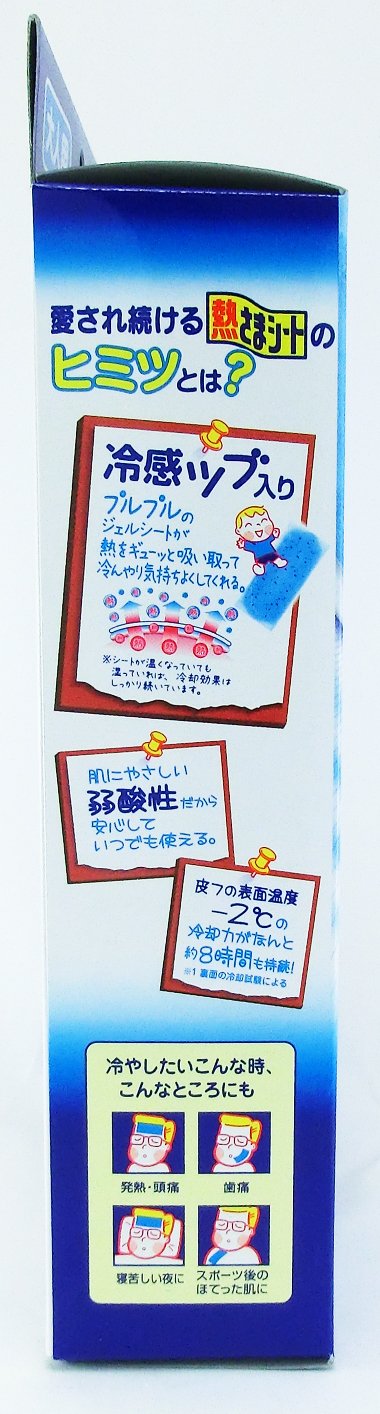 愛され続ける熱さまシートの
ヒミツとは?
冷感ツブ入り
プルプルの
ジェルシートが
熱をギューッと吸い取って
冷んやり気持ちよくしてくれる。
※シートが温くなっていても
湿っていれば、冷却効果は
しっかり続いています。
肌にやさしい
弱酸性だから
安心して
いつでも使える。
皮フの表面温度
−2℃の
冷却力がなんと
約8時間も持続!
※1 裏面の冷却試験による
冷やしたいこんな時、
こんなところにも
発熱・頭痛
歯痛
寝苦しい夜に
スポーツ後の
ほてった肌に